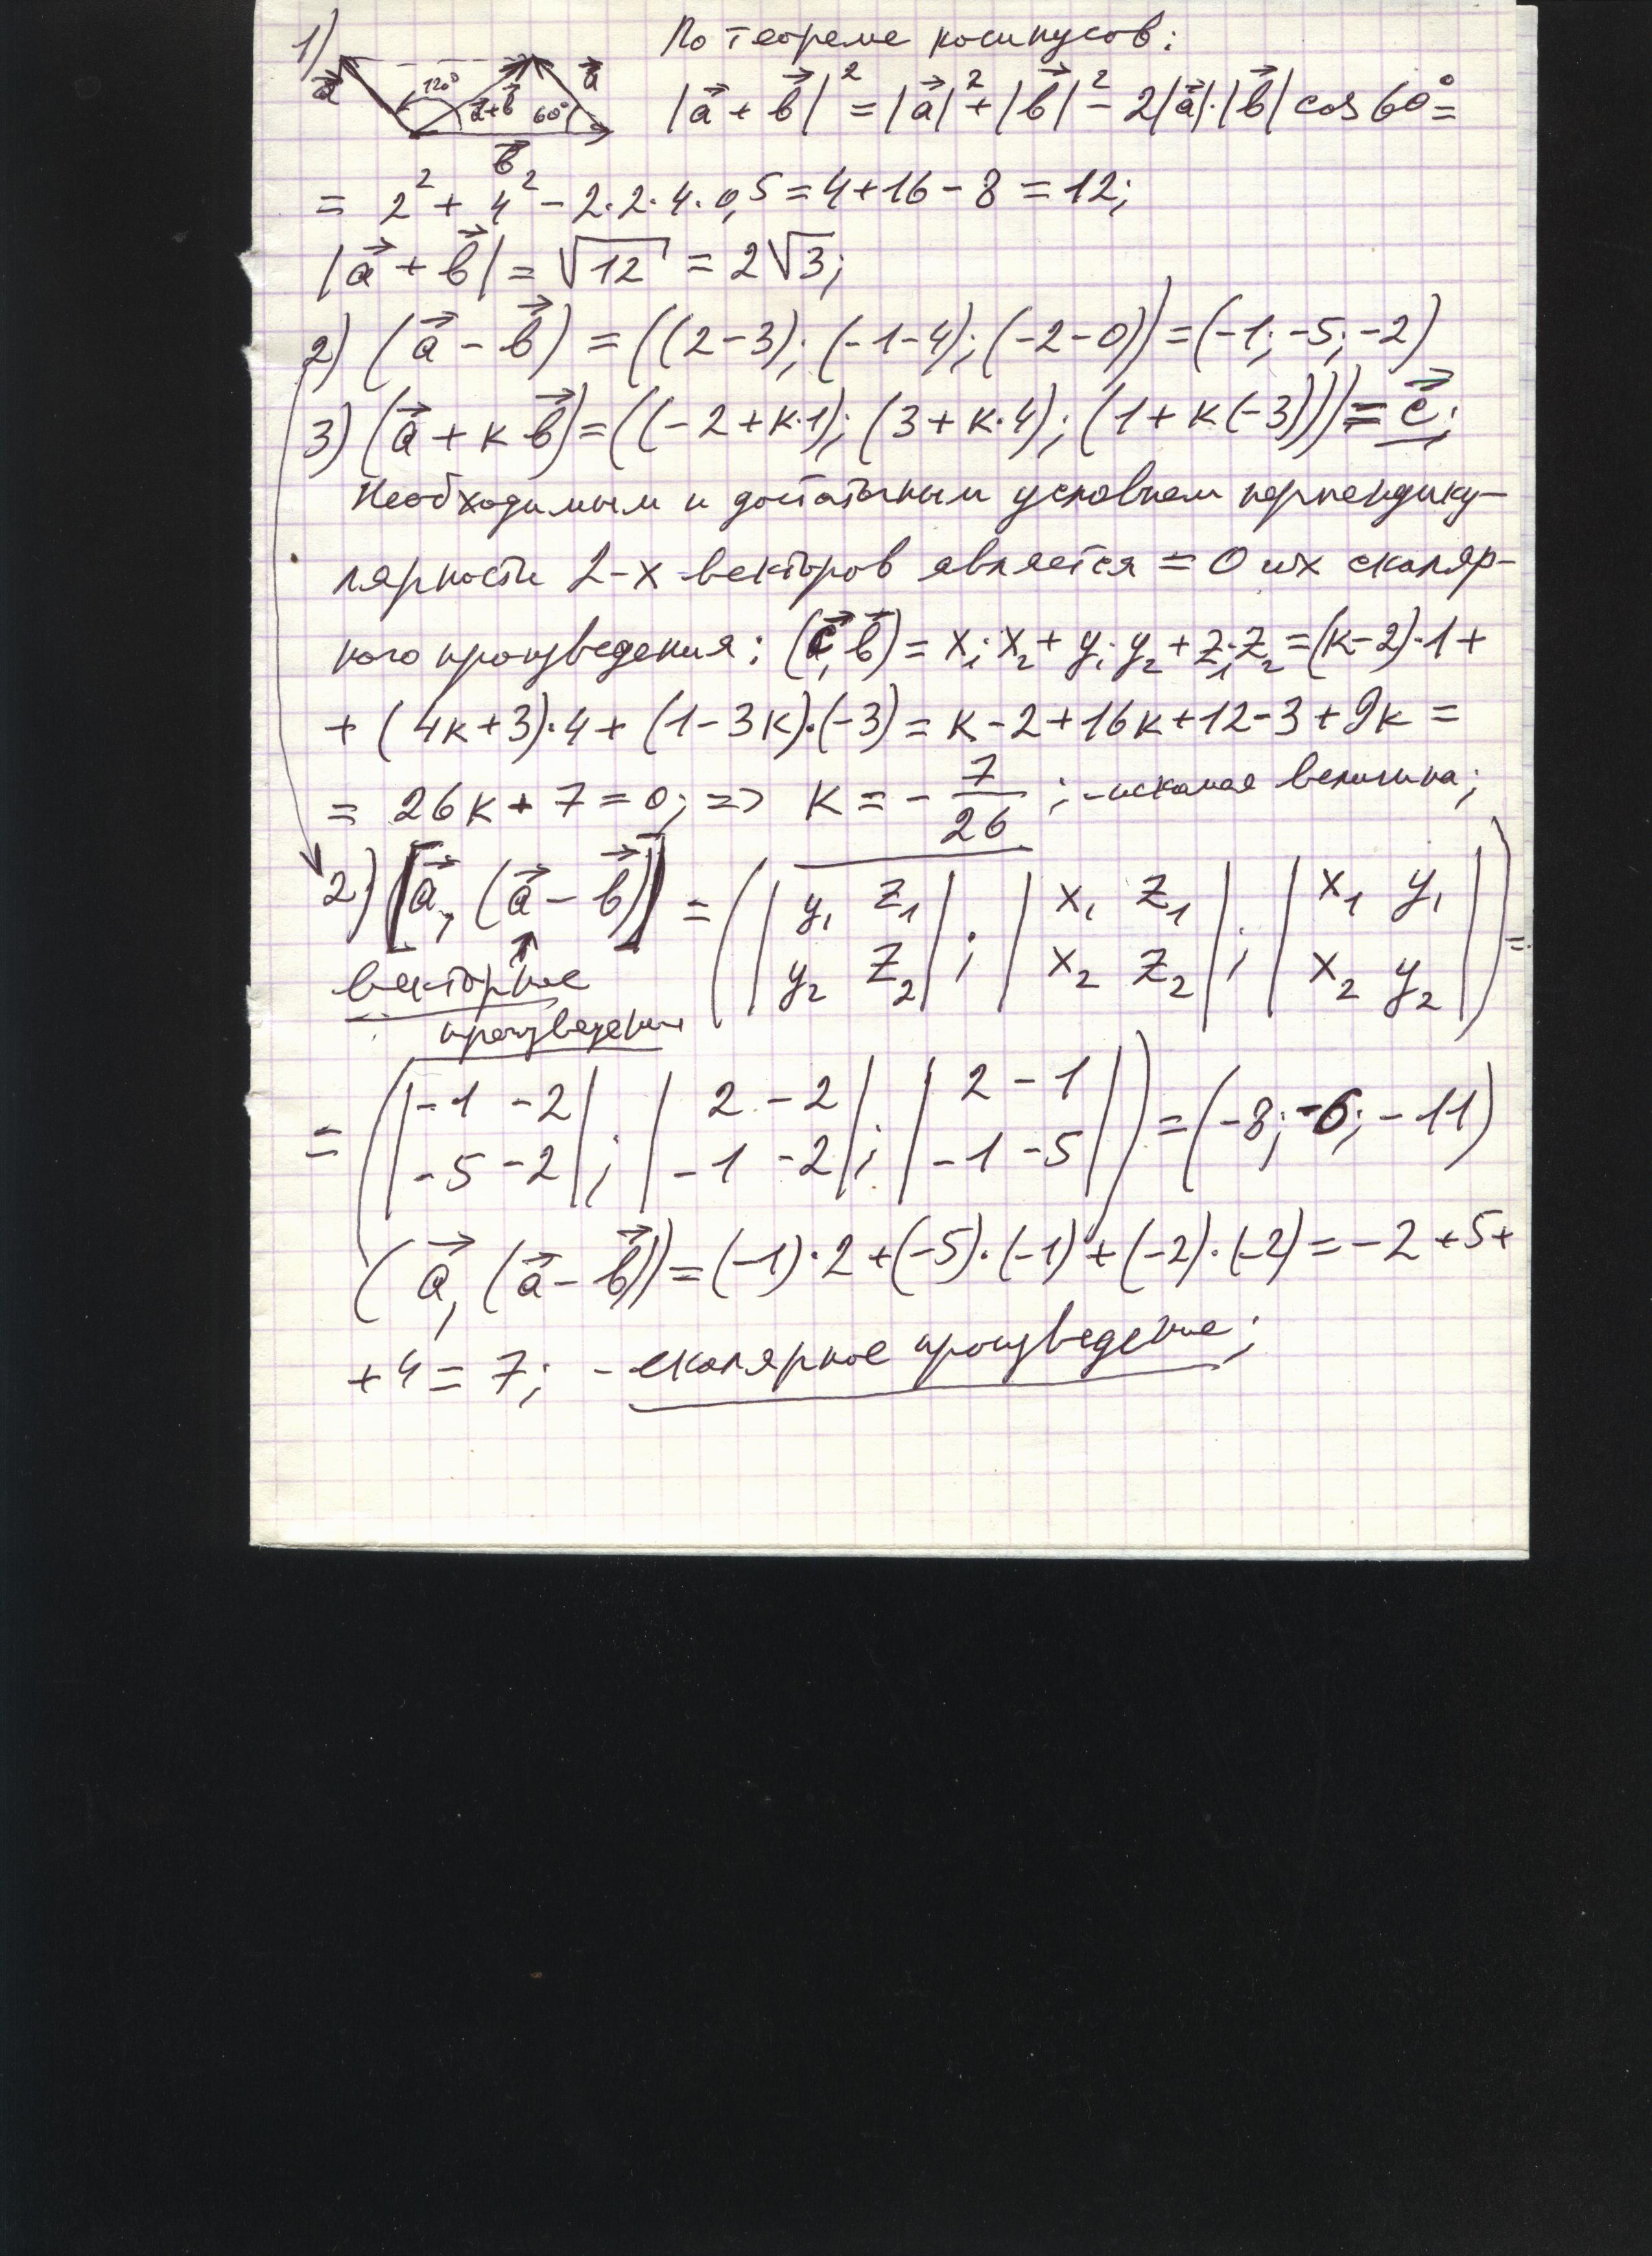 1) По теореме косинусов:
a⃗ 120° a⃗+b⃗ 60° a⃗ b⃗
|a⃗ + b⃗|² = |a⃗|² + |b⃗|² - 2|a⃗|·|b⃗| cos 60° =
= 2² + 4² - 2·2·4·0,5 = 4+16-8 = 12;
|a⃗ + b⃗| = √12 = 2√3;
2) (a⃗ - b⃗) = ((2-3); (-1-4); (-2-0)) = (-1; -5; -2)
3) (a⃗ + к b⃗) = ((-2+к·1); (3+к·4); (1+к(-3))) = c⃗;
Необходимым и достаточным условием перпендику-
лярности 2-х векторов является = 0 их скаляр-
ного произведения: (c⃗, b⃗) = x₁·x₂ + y₁·y₂ + z₁·z₂ = (к-2)·1 +
+ (4к+3)·4 + (1-3к)·(-3) = к-2+16к+12-3+9к =
= 26к + 7 = 0; => к = - 7/26 ; - искомая величина;
2) [a⃗, (a⃗ - b⃗)] = (|y₁ z₁; y₂ z₂|; |x₁ z₁; x₂ z₂|; |x₁ y₁; x₂ y₂|) =
векторное
произведение
= (|-1 -2; -5 -2|; |2 -2; -1 -2|; |2 -1; -1 -5|) = (-8; -6; -11)
(a⃗, (a⃗ - b⃗)) = (-1)·2 + (-5)·(-1) + (-2)·(-2) = -2 +5+
+4 = 7; - скалярное произведение;